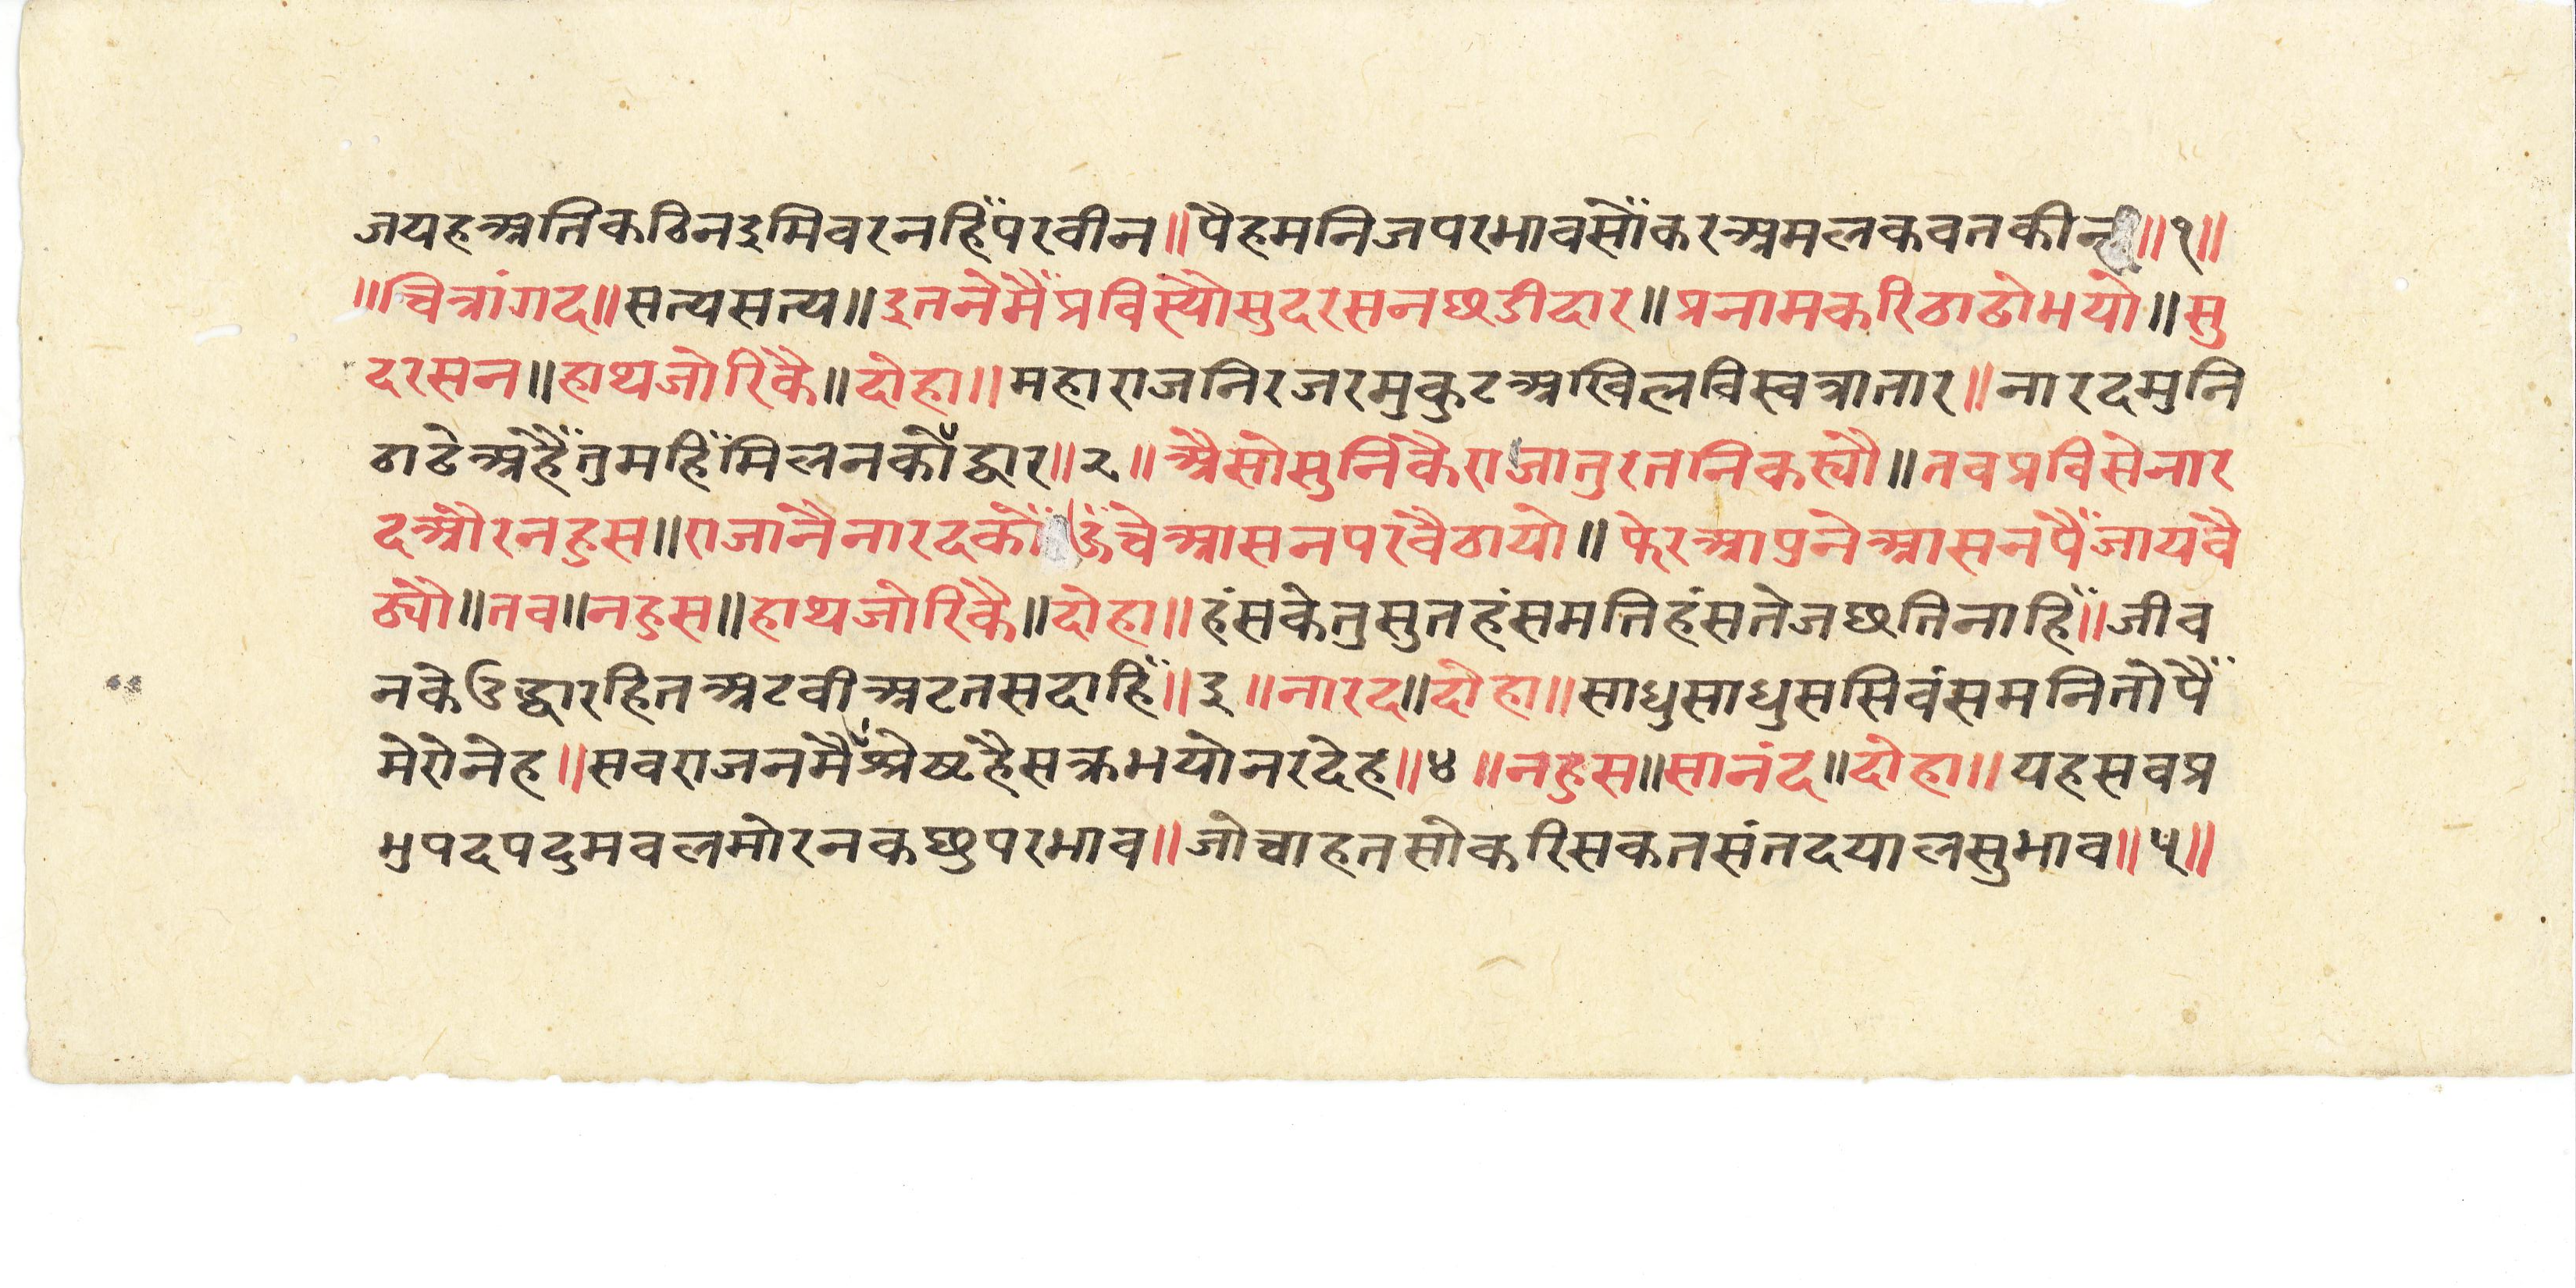 जयहअतिकठिनइमिवरनहिँपरवीन॥पैहमनिजपरभावसोँकरअमलकवतकीन्ह॥१॥
॥चित्रांगद॥सत्यसत्य॥इतनेमैँप्रविस्यौसुदरसनछडीदार॥प्रनामकरिठाढोभयो॥सु
दरसन॥हाथजोरिकै॥दोहा॥महाराजनिरजरमुकुटअखिलविस्वत्रातार॥नारदमुनि
ठाढेअहैँतुमहिँमिलनकोँद्वार॥२॥अैसोसुनिकैराजातुरतनिकस्यौ॥तवप्रविसेनार
दऔरनहुस॥राजानैनारदकोँऊँचेआसनपरवैठायो॥फेरआपुनेआसनपैँजायवै
ठ्यौ॥तव॥नहुस॥हाथजोरिकै॥दोहा॥हंसकेतुसुतहंसमतिहंसतेजछतिनाहिँ॥जीव
नकेउद्धारहितअटवीअटतसदाहिँ॥३॥नारद॥दोहा॥साधुसाधुससिवंसमनितोपैँ
मेरोनेह॥सवराजनमैँश्रेष्टहैसक्रभयोनरदेह॥४॥नहुस॥सानंद॥दोहा॥यहसवप्र
भुपदपदुमवलमोरनकछुपरभाव॥जोचाहतसोकरिसकतसंतदयालसुभाव॥५॥